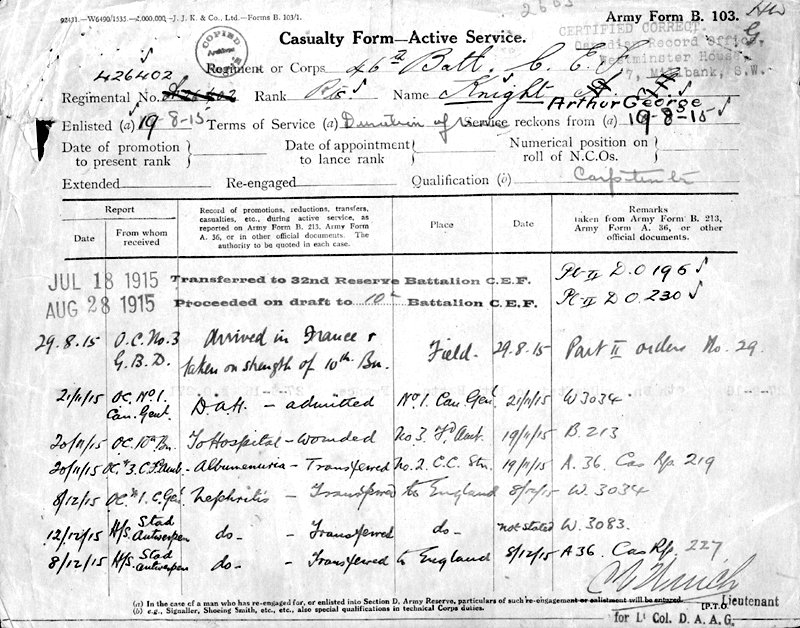 92431.—W6490/1535.—2,000,000.—J. J. K. & Co., Ltd.—Forms B. 103/1.
Army Form B. 103.
COPIED
CERTIFIED CORRECT.
Canadian Record Office,
Westminster House,
7, Millbank, S.W.
Casualty Form—Active Service.
426402
Regiment or Corps 46th Batt. C. E. F.
Regimental No. Rank Pte. Name Knight
Arthur George
Enlisted (a) 19-8-15 Terms of Service (a) Duration of War Service reckons from (a) 19-8-15
Date of promotion to present rank
Date of appointment to lance rank
Numerical position on roll of N.C.Os.
Extended Re-engaged Qualification (b) Carpenter
Report
Date
From whom received
Record of promotions, reductions, transfers, casualties, etc., during active service, as reported on Army Form B. 213, Army Form A. 36, or in other official documents. The authority to be quoted in each case.
Place
Date
Remarks
taken from Army Form B. 213, Army Form A. 36, or other official documents.
JUL 18 1915 Transferred to 32nd Reserve Battalion C.E.F. Pt-II D.O 196
AUG 28 1915 Proceeded on draft to 10th Battalion C.E.F. Pt-II D O. 230
29.8.15 O.C. No. 3 G.B.D. Arrived in France & taken on strength of 10th Bn. Field. 29.8.15 Part II orders No. 29.
21/11/15 OC No 1. Can. Genl. D.A.H. – admitted No 1. Can Genl 21/11/15 W.3034
20/11/15 O.C. 10th Bn. To Hospital – wounded No 3. Fd Amb. 19/11/15 B.213
20/11/15 OC 3. C.F. Amb. – Albumenuria – Transferred No. 2. C.C. Stn. 19/11/15 A.36. Cas Rp. 219
8/12/15 OC 1. C. Genl Nephritis – Transferred to England 8/12/15 W.3034
12/12/15 H/S. Stad Antwerpen do – Transferred do – not stated W.3083.
8/12/15 H/S. Stad Antwerpen do – Transferred to England 8/12/15 A36 Cas Rp. 227
(a) In the case of a man who has re-engaged for, or enlisted into Section D, Army Reserve, particulars of such re-engagement or enlistment will be entered.
(b) e.g., Signaller, Shoeing Smith, etc., etc., also special qualifications in technical Corps duties.
[P.T.O.
Lieutenant
for Lt Col. D. A. A. G.